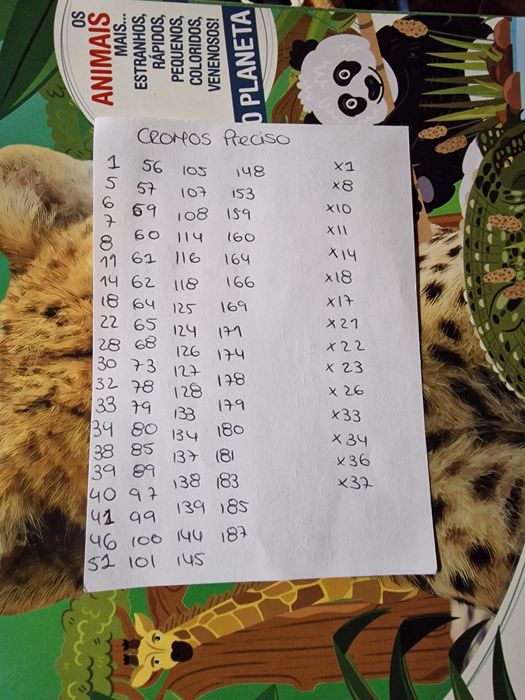 OS
ANIMAIS
MAIS...
ESTRANHOS,
RÁPIDOS,
PEQUENOS,
COLORIDOS,
VENENOSOS!
O PLANETA
CROMOS Preciso
1
5
6
7
8
11
14
18
22
28
30
32
33
34
38
39
40
41
46
51
56
57
59
60
61
62
64
65
68
73
78
79
80
85
89
97
99
100
101
105
107
108
114
116
118
125
124
126
127
128
133
134
137
138
139
144
145
148
153
159
160
164
166
169
171
174
178
179
180
181
183
185
187
x1
x8
x10
x11
x14
x18
x17
x21
x22
x23
x26
x33
x34
x36
x37